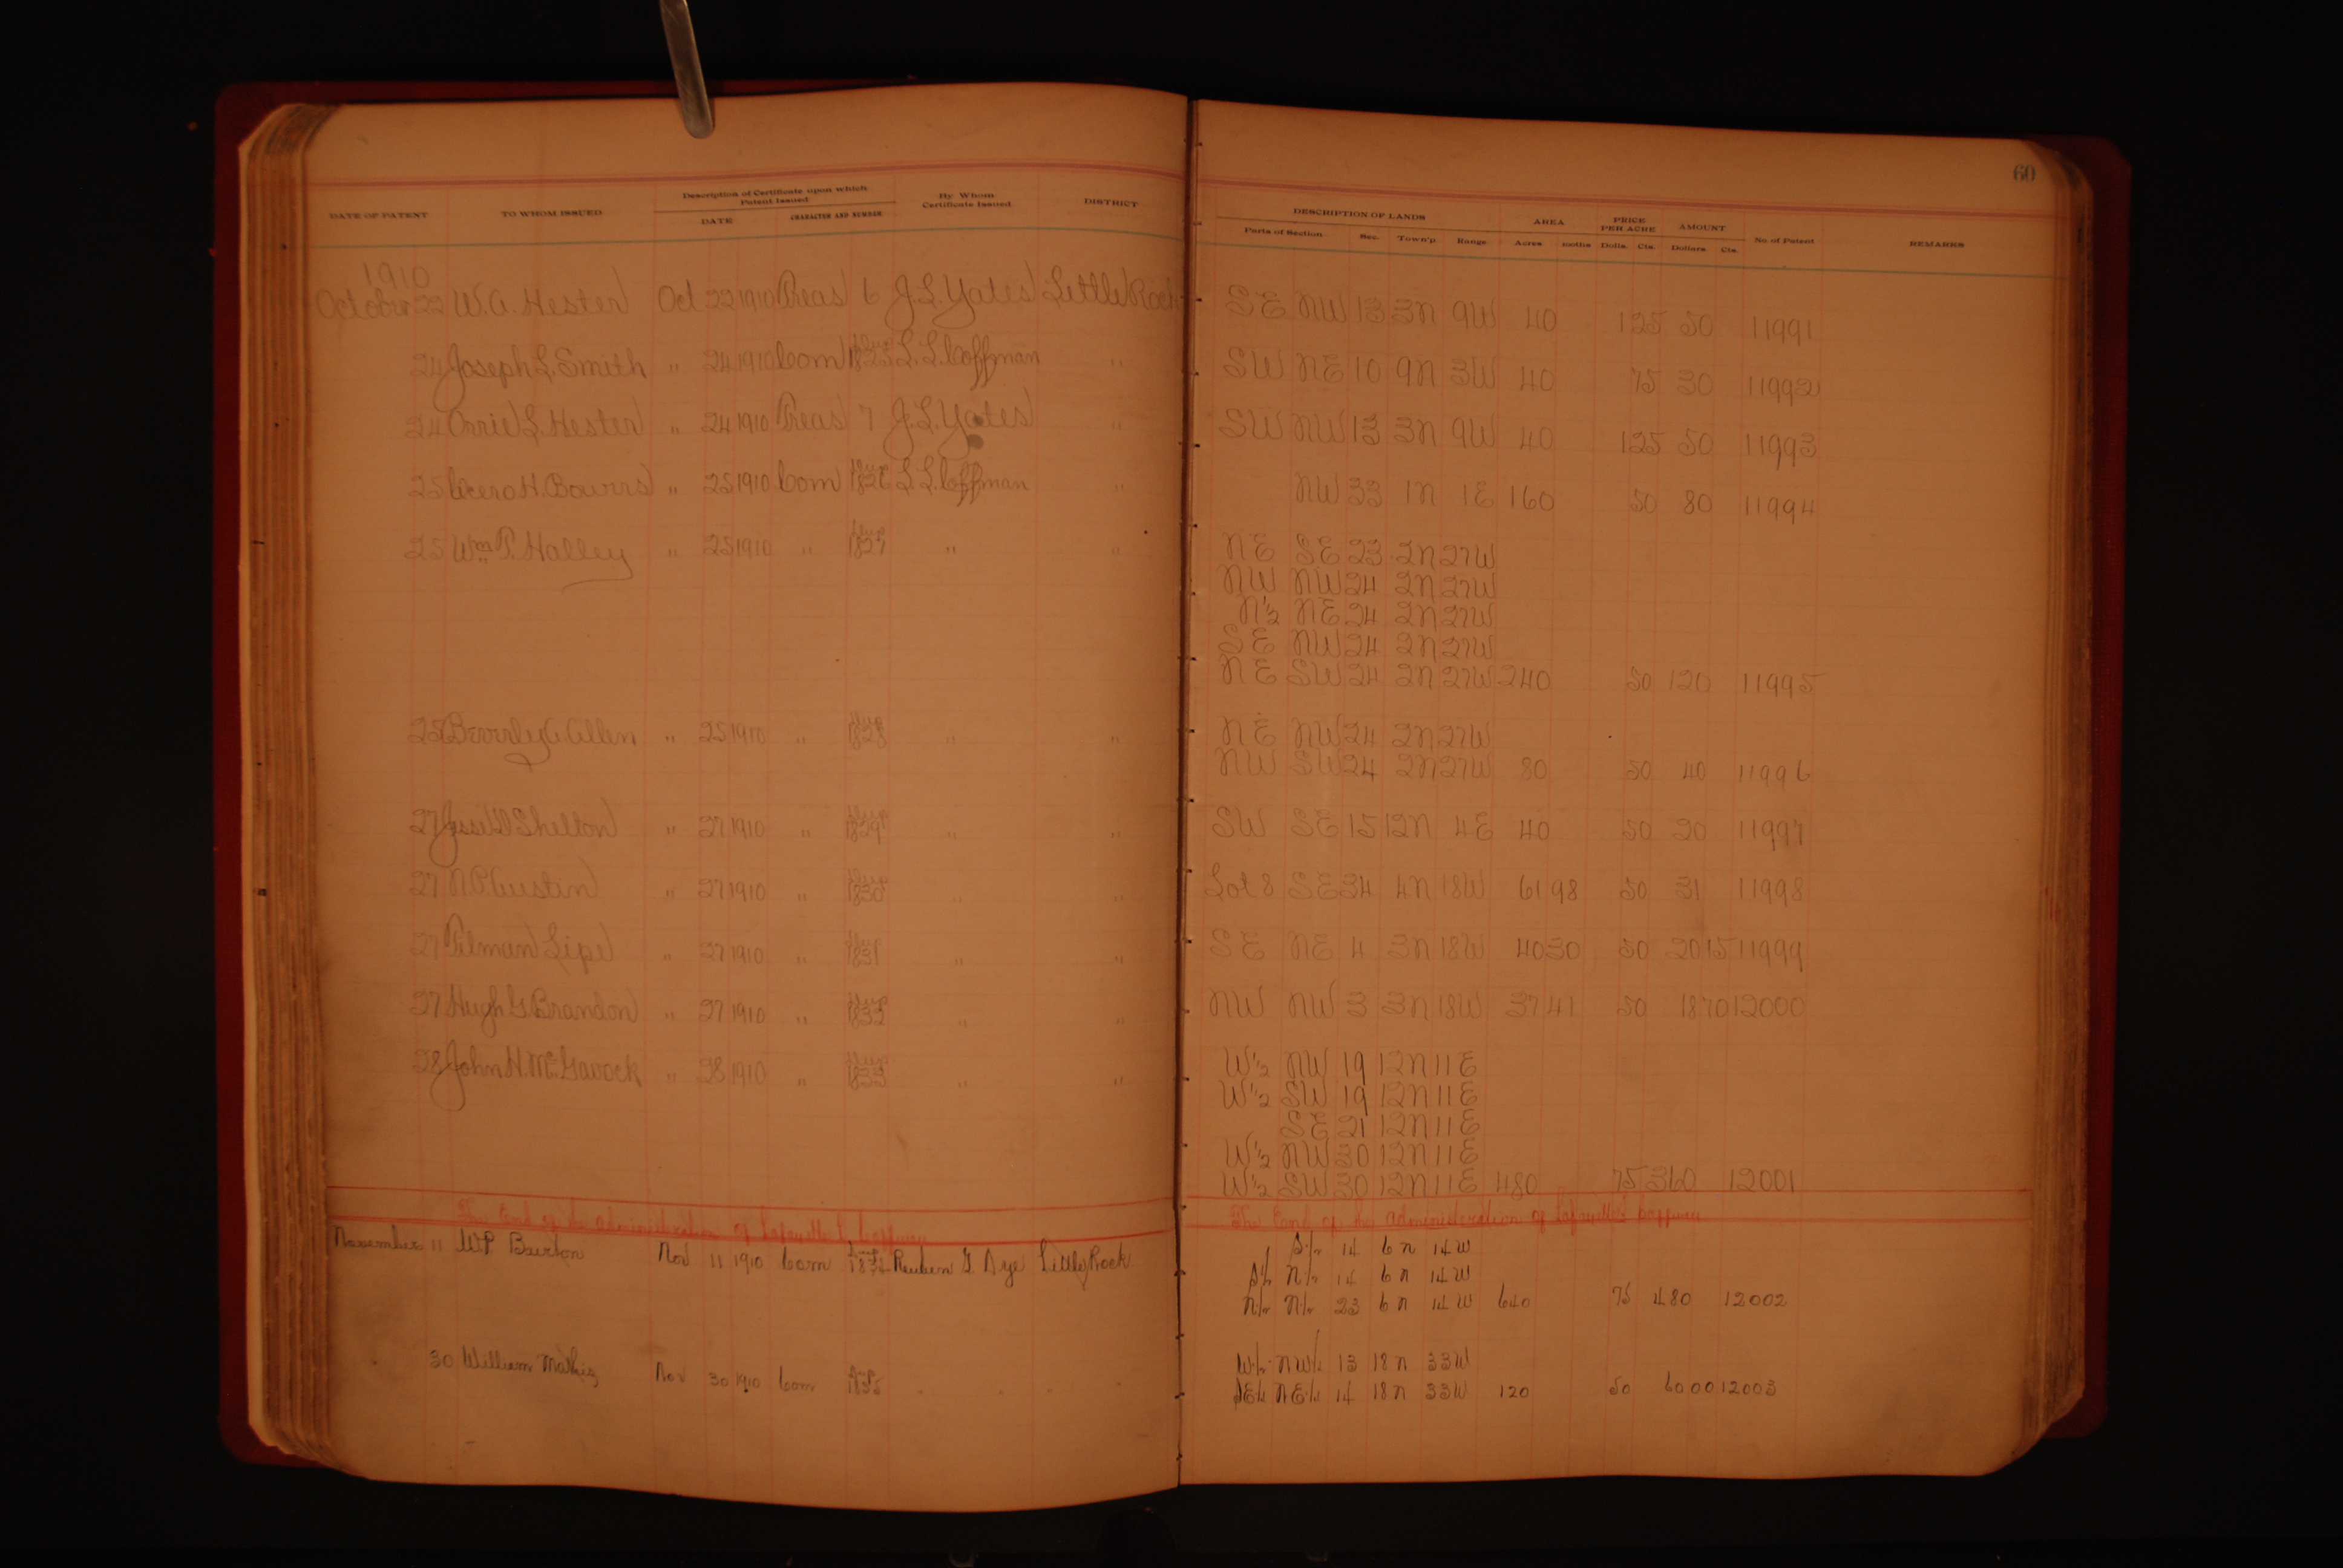 60
DATE OF PATENT TO WHOM ISSUED Description of Certificate upon which Patent Issued DATE CHARACTER AND NUMBER By Whom Certificate Issued DISTRICT DESCRIPTION OF LANDS Parts of Section Sec. Town'p Range AREA Acres 100ths PRICE PER ACRE Dolls. Cts. AMOUNT Dollars Cts. No of Patent REMARKS
1910
October 22 W. A. Hester Oct 22 1910 Treas 6 J. L. Yates Little Rock SE NW 13 3N 9W 40 1 25 50 11991
24 Joseph L. Smith " 24 1910 Com 1825 L. L. Coffman " SW NE 10 9N 3W 40 75 30 11992
24 Orrie L. Hester " 24 1910 Treas 7 J. L. Yates " SW NW 13 3N 9W 40 1 25 50 11993
25 Cicero H. Bowrrs " 25 1910 Com 1826 L. L. Coffman " NW 33 1N 1E 160 50 80 11994
25 Wm P. Halley " 25 1910 " 1827 " " NE SE 23 2N 27W
NW NW 24 2N 27W
N½ NE 24 2N 27W
SE NW 24 2N 27W
NE SW 24 2N 27W 240 50 120 11995
25 Beverly A. Allen " 25 1910 " 1828 " " NE NW 24 2N 27W
NW SW 24 2N 27W 80 50 40 11996
27 Jesse D Shelton " 27 1910 " 1829 " " SW SE 15 12N 4E 40 50 20 11997
27 N. P. Austin " 27 1910 " 1830 " " Lot 8 SE 34 4N 18W 61 98 50 31 11998
27 Tilman Lipe " 27 1910 " 1831 " " SE NE 4 3N 18W 40 30 50 20 15 11999
27 Hugh G. Brandon " 27 1910 " 1832 " " NW NW 3 3N 18W 37 41 50 18 70 12000
28 John H. McGavock " 28 1910 " 1833 " " W½ NW 19 12N 11E
W½ SW 19 12N 11E
SE 21 12N 11E
W½ NW 30 12N 11E
W½ SW 30 12N 11E 480 75 360 12001
The End of the administration of Lafayette L Coffman The End of the administration of Lafayette L Coffman
November 11 W. P. Burton Nov 11 1910 Com 1834 Reuben G. Dye Little Rock S½ 14 6N 14W
S½ N½ 14 6N 14W
N½ N½ 23 6N 14W 640 75 480 12002
30 William Mathis Nov 30 1910 Com 1835 W½ NW¼ 13 18N 33W
SE¼ NE¼ 14 18N 33W 120 50 60 00 12003